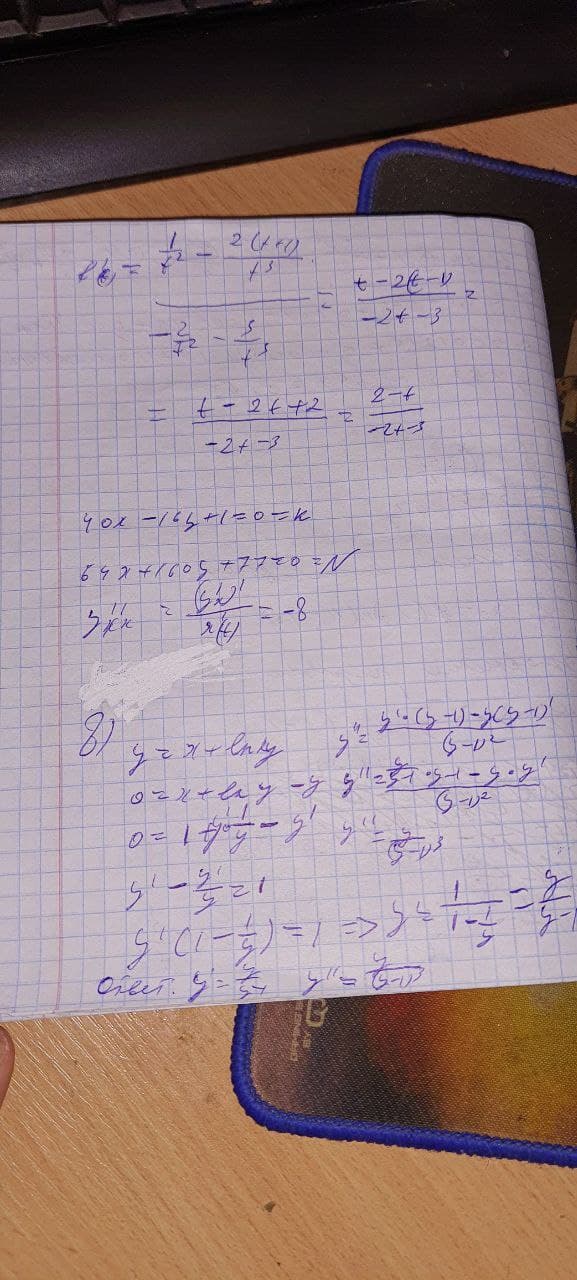 = \frac{\frac{1}{t^2} - \frac{2(t+1)}{t^3}}{-\frac{2}{t^2} - \frac{3}{t^3}} = \frac{t-2(t-1)}{-2t-3} =
= \frac{t-2t+2}{-2t-3} = \frac{2-t}{-2t-3}
40x-16y+1=0=K
64x+160y+77=0=N
y''_{xx} = \frac{(y'_x)'}{x'(t)} = -8
8)
y=x+ln y
y''=\frac{y'·(y-1)-y(y-1)'}{(y-1)^2}
0=x+ln y-y
y''=\frac{\frac{y}{y-1}·y-1-y·y'}{(y-1)^2}
0=1+y'·\frac{1}{y}-y'
y''=\frac{y}{(y-1)^3}
y'-\frac{y'}{y}=1
y'(1-\frac{1}{y})=1 => y'=\frac{1}{1-\frac{1}{y}}=\frac{y}{y-1}
Ответ: y'=\frac{y}{y-1} y''=\frac{y}{(y-1)^3}